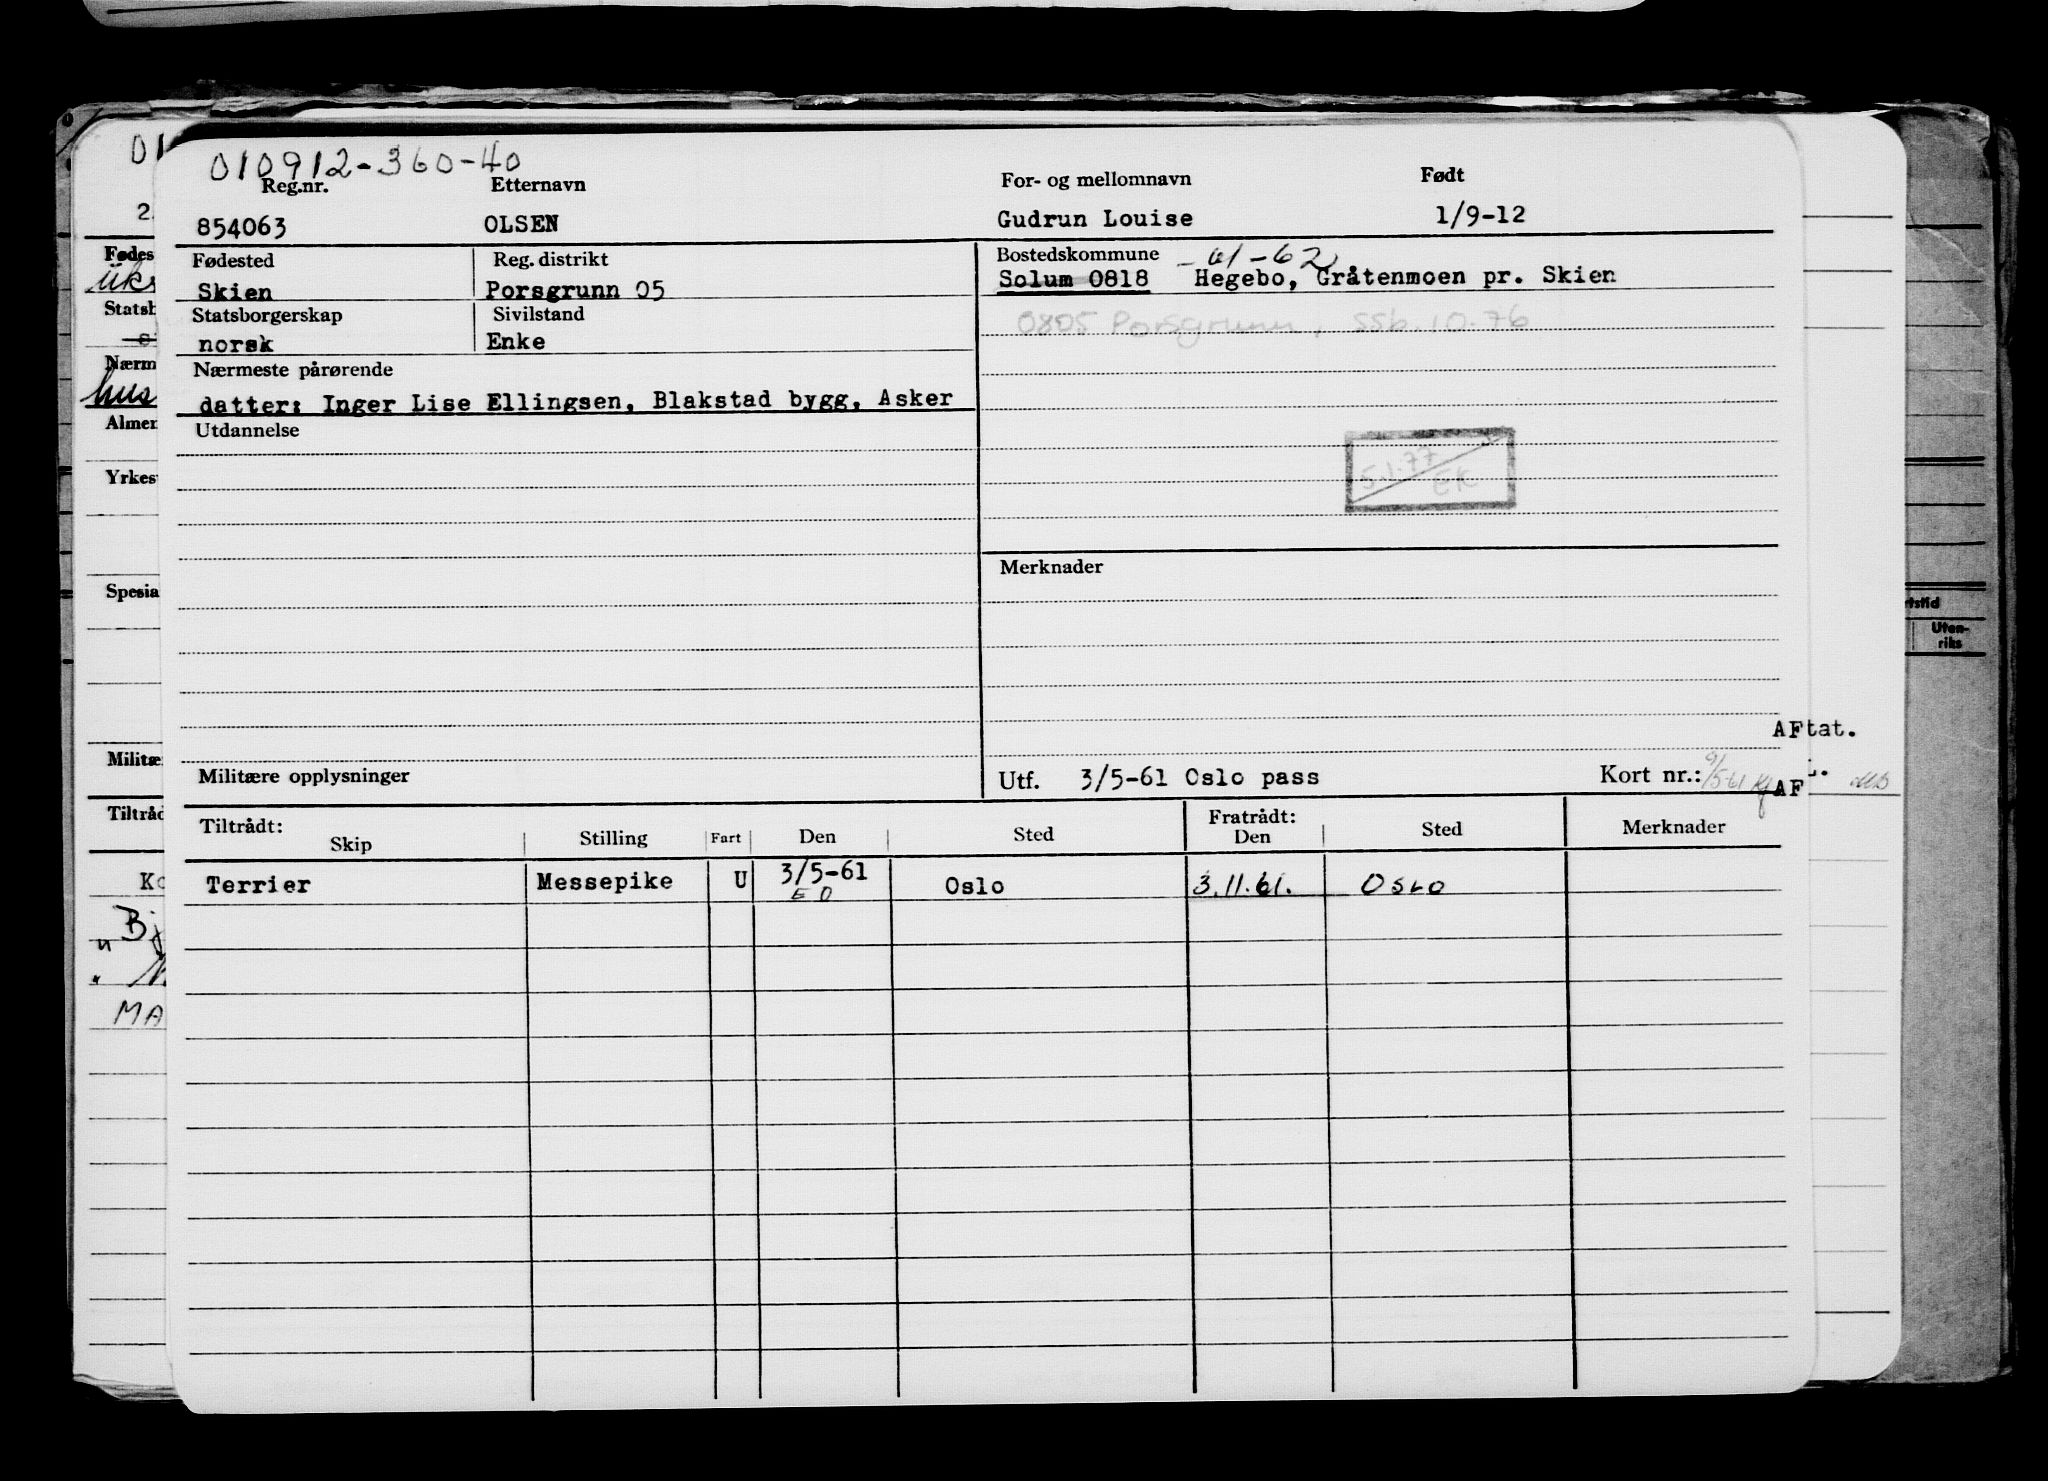 010912-360-40
Reg.nr. Etternavn For- og mellomnavn Født
854063 OLSEN Gudrun Louise 1/9-12
Fødested Reg. distrikt Bostedskommune -61-62
Skien Porsgrunn 05 Solum 0818 Hegebo, Gråtenmoen pr. Skien
Statsborgerskap Sivilstand 0805 Porsgrunn, SSb. 10.76
norsk Enke
Nærmeste pårørende
datter: Inger Lise Ellingsen, Blakstad bygg, Asker
Utdannelse
5.1.77
EK
Merknader
Militære opplysninger Utf. 3/5-61 Oslo pass Kort nr.:
Tiltrådt: Fratrådt:
Skip Stilling Fart Den Sted Den Sted Merknader
Terrier Messepike U 3/5-61 Oslo 3.11.61. OSLO
E O
01
2.
Fødes
Statsb
Nærm
hus
Almen
Yrkes
Spesia
Militæ
Tiltråd
Ko
Bj
MA
AFtat.
AF L.
rtstid
Uten-
riks